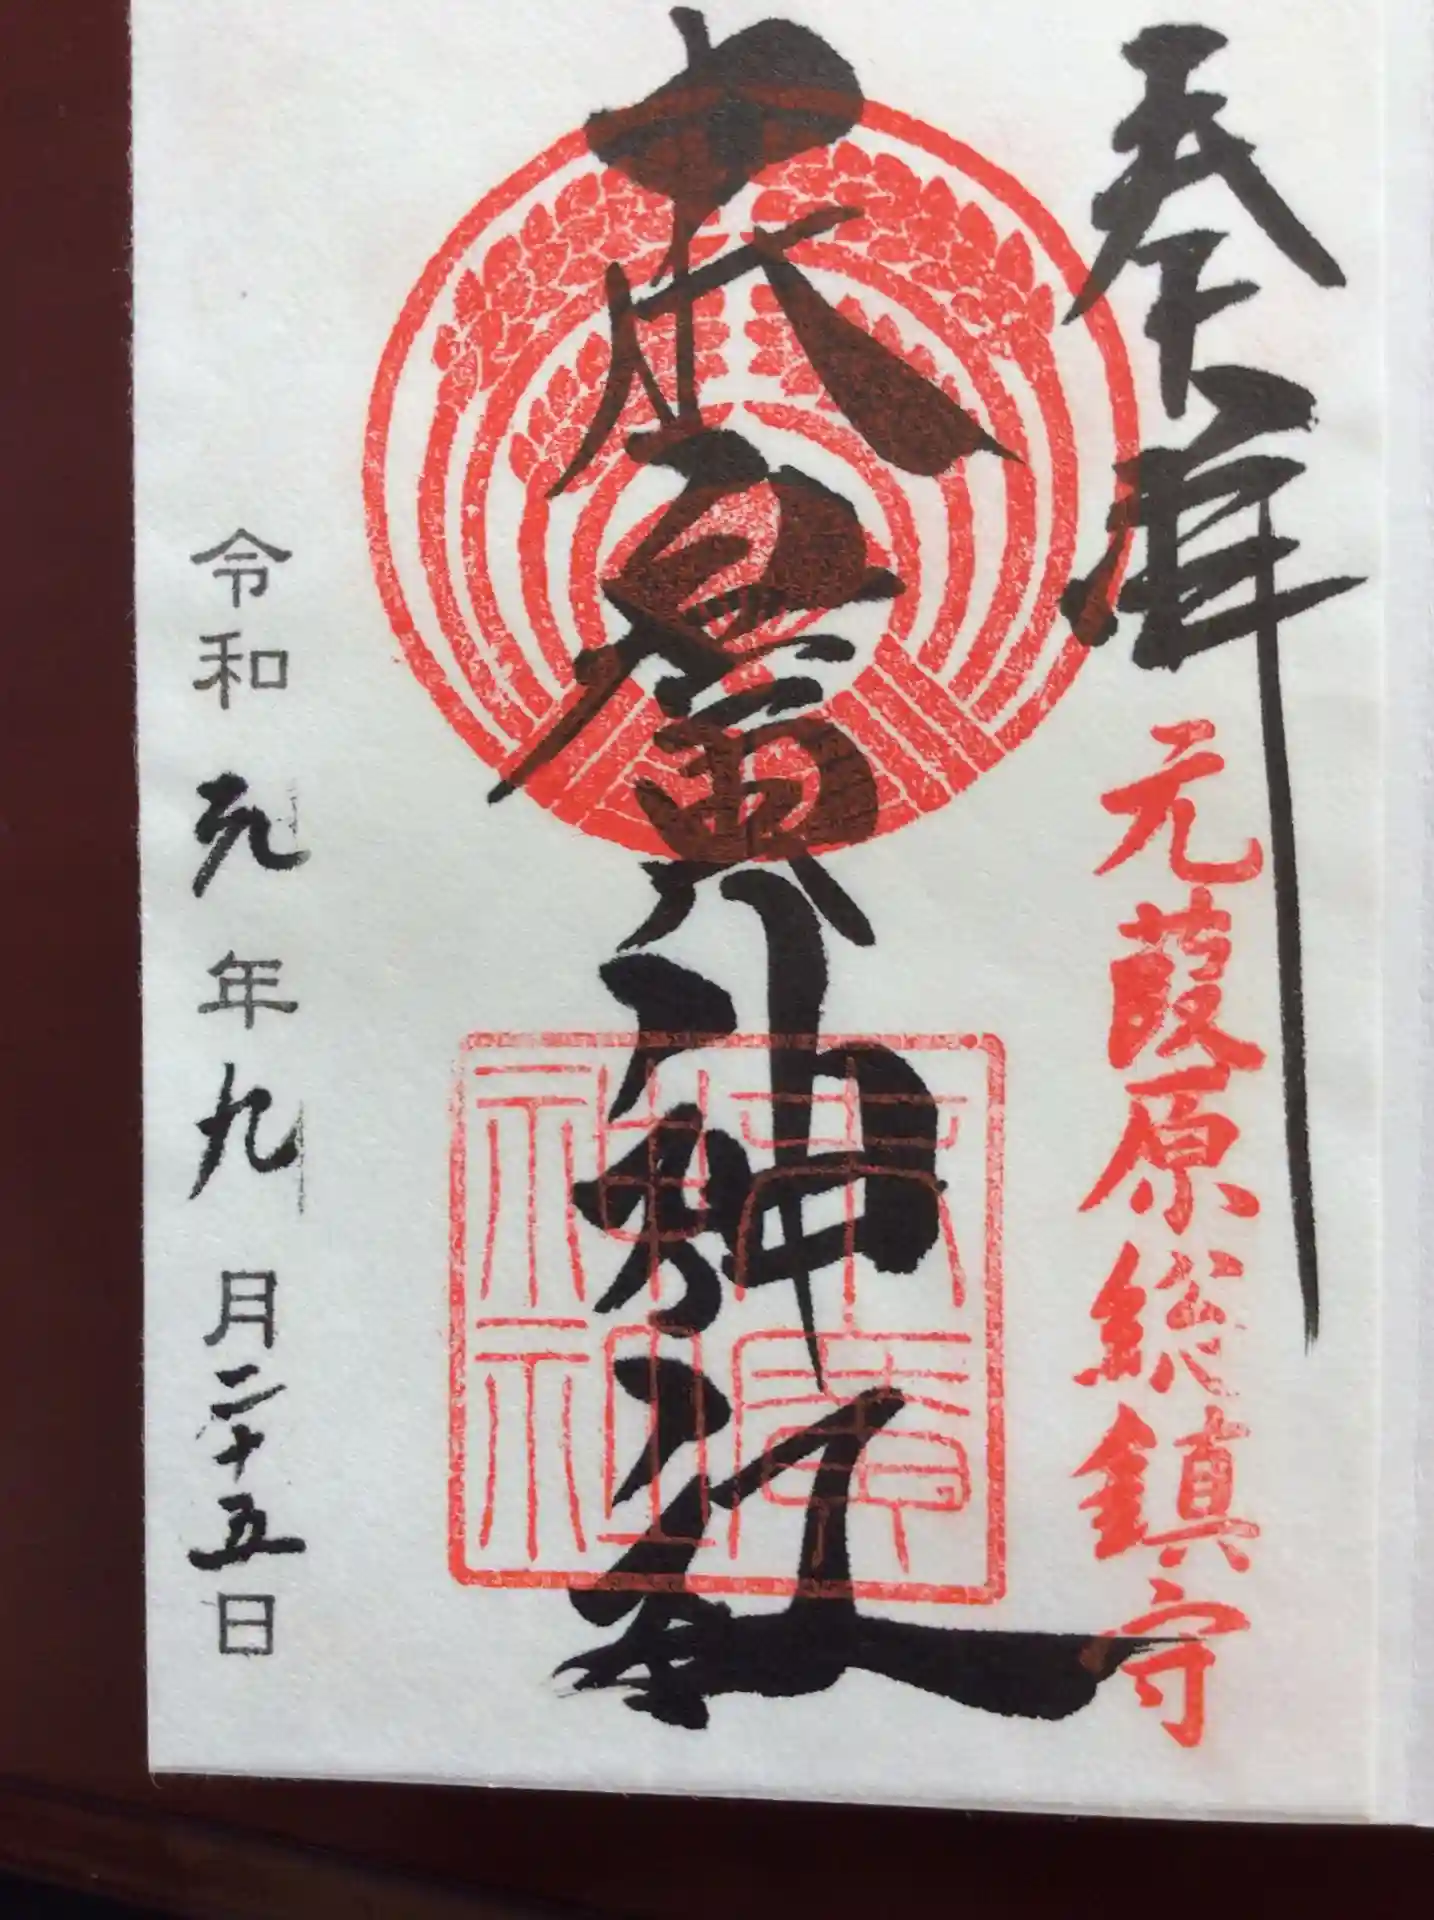 奉拝
元葭原総鎮守
末廣神社
末廣
神社
令和元年九月二十五日